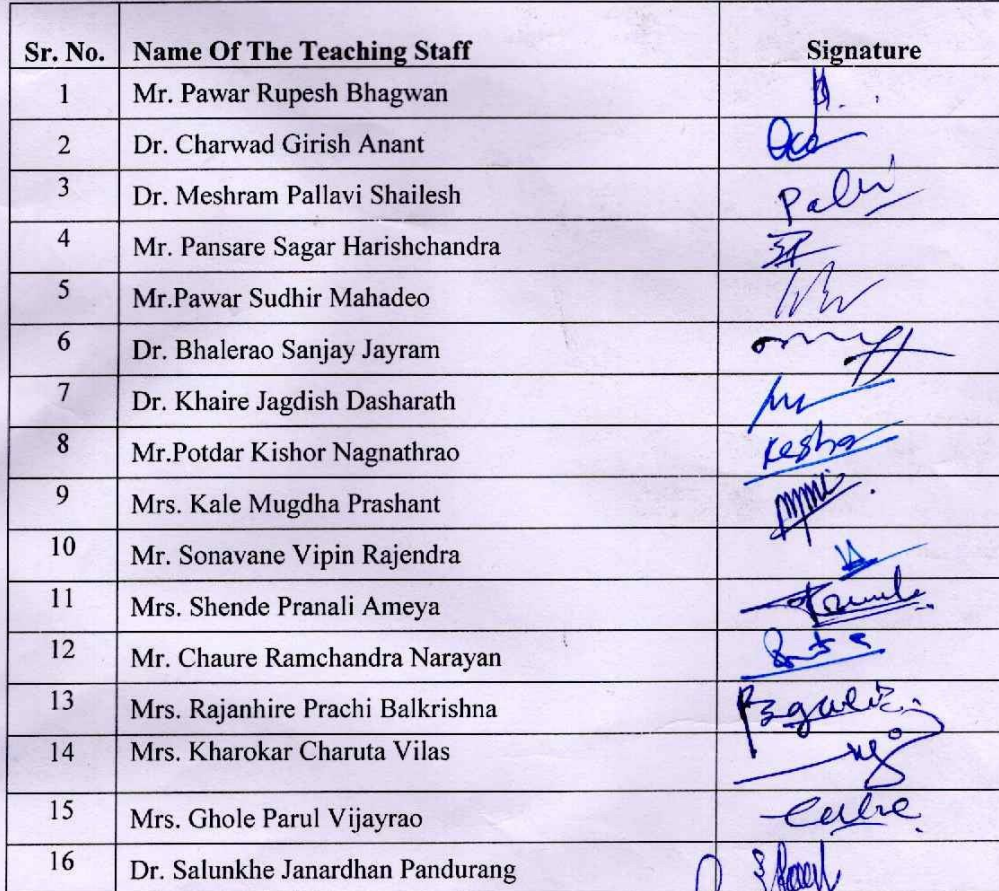 Sr. No. Name Of The Teaching Staff Signature
1 Mr. Pawar Rupesh Bhagwan
2 Dr. Charwad Girish Anant
3 Dr. Meshram Pallavi Shailesh
4 Mr. Pansare Sagar Harishchandra
5 Mr.Pawar Sudhir Mahadeo
6 Dr. Bhalerao Sanjay Jayram
7 Dr. Khaire Jagdish Dasharath
8 Mr.Potdar Kishor Nagnathrao
9 Mrs. Kale Mugdha Prashant
10 Mr. Sonavane Vipin Rajendra
11 Mrs. Shende Pranali Ameya
12 Mr. Chaure Ramchandra Narayan
13 Mrs. Rajanhire Prachi Balkrishna
14 Mrs. Kharokar Charuta Vilas
15 Mrs. Ghole Parul Vijayrao
16 Dr. Salunkhe Janardhan Pandurang